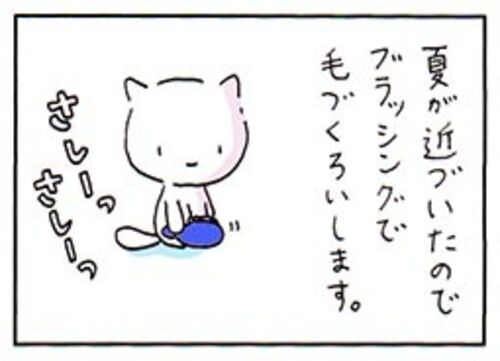 夏が近づいたので
ブラッシングで
毛づくろいします。
さしーっ
さしーっ